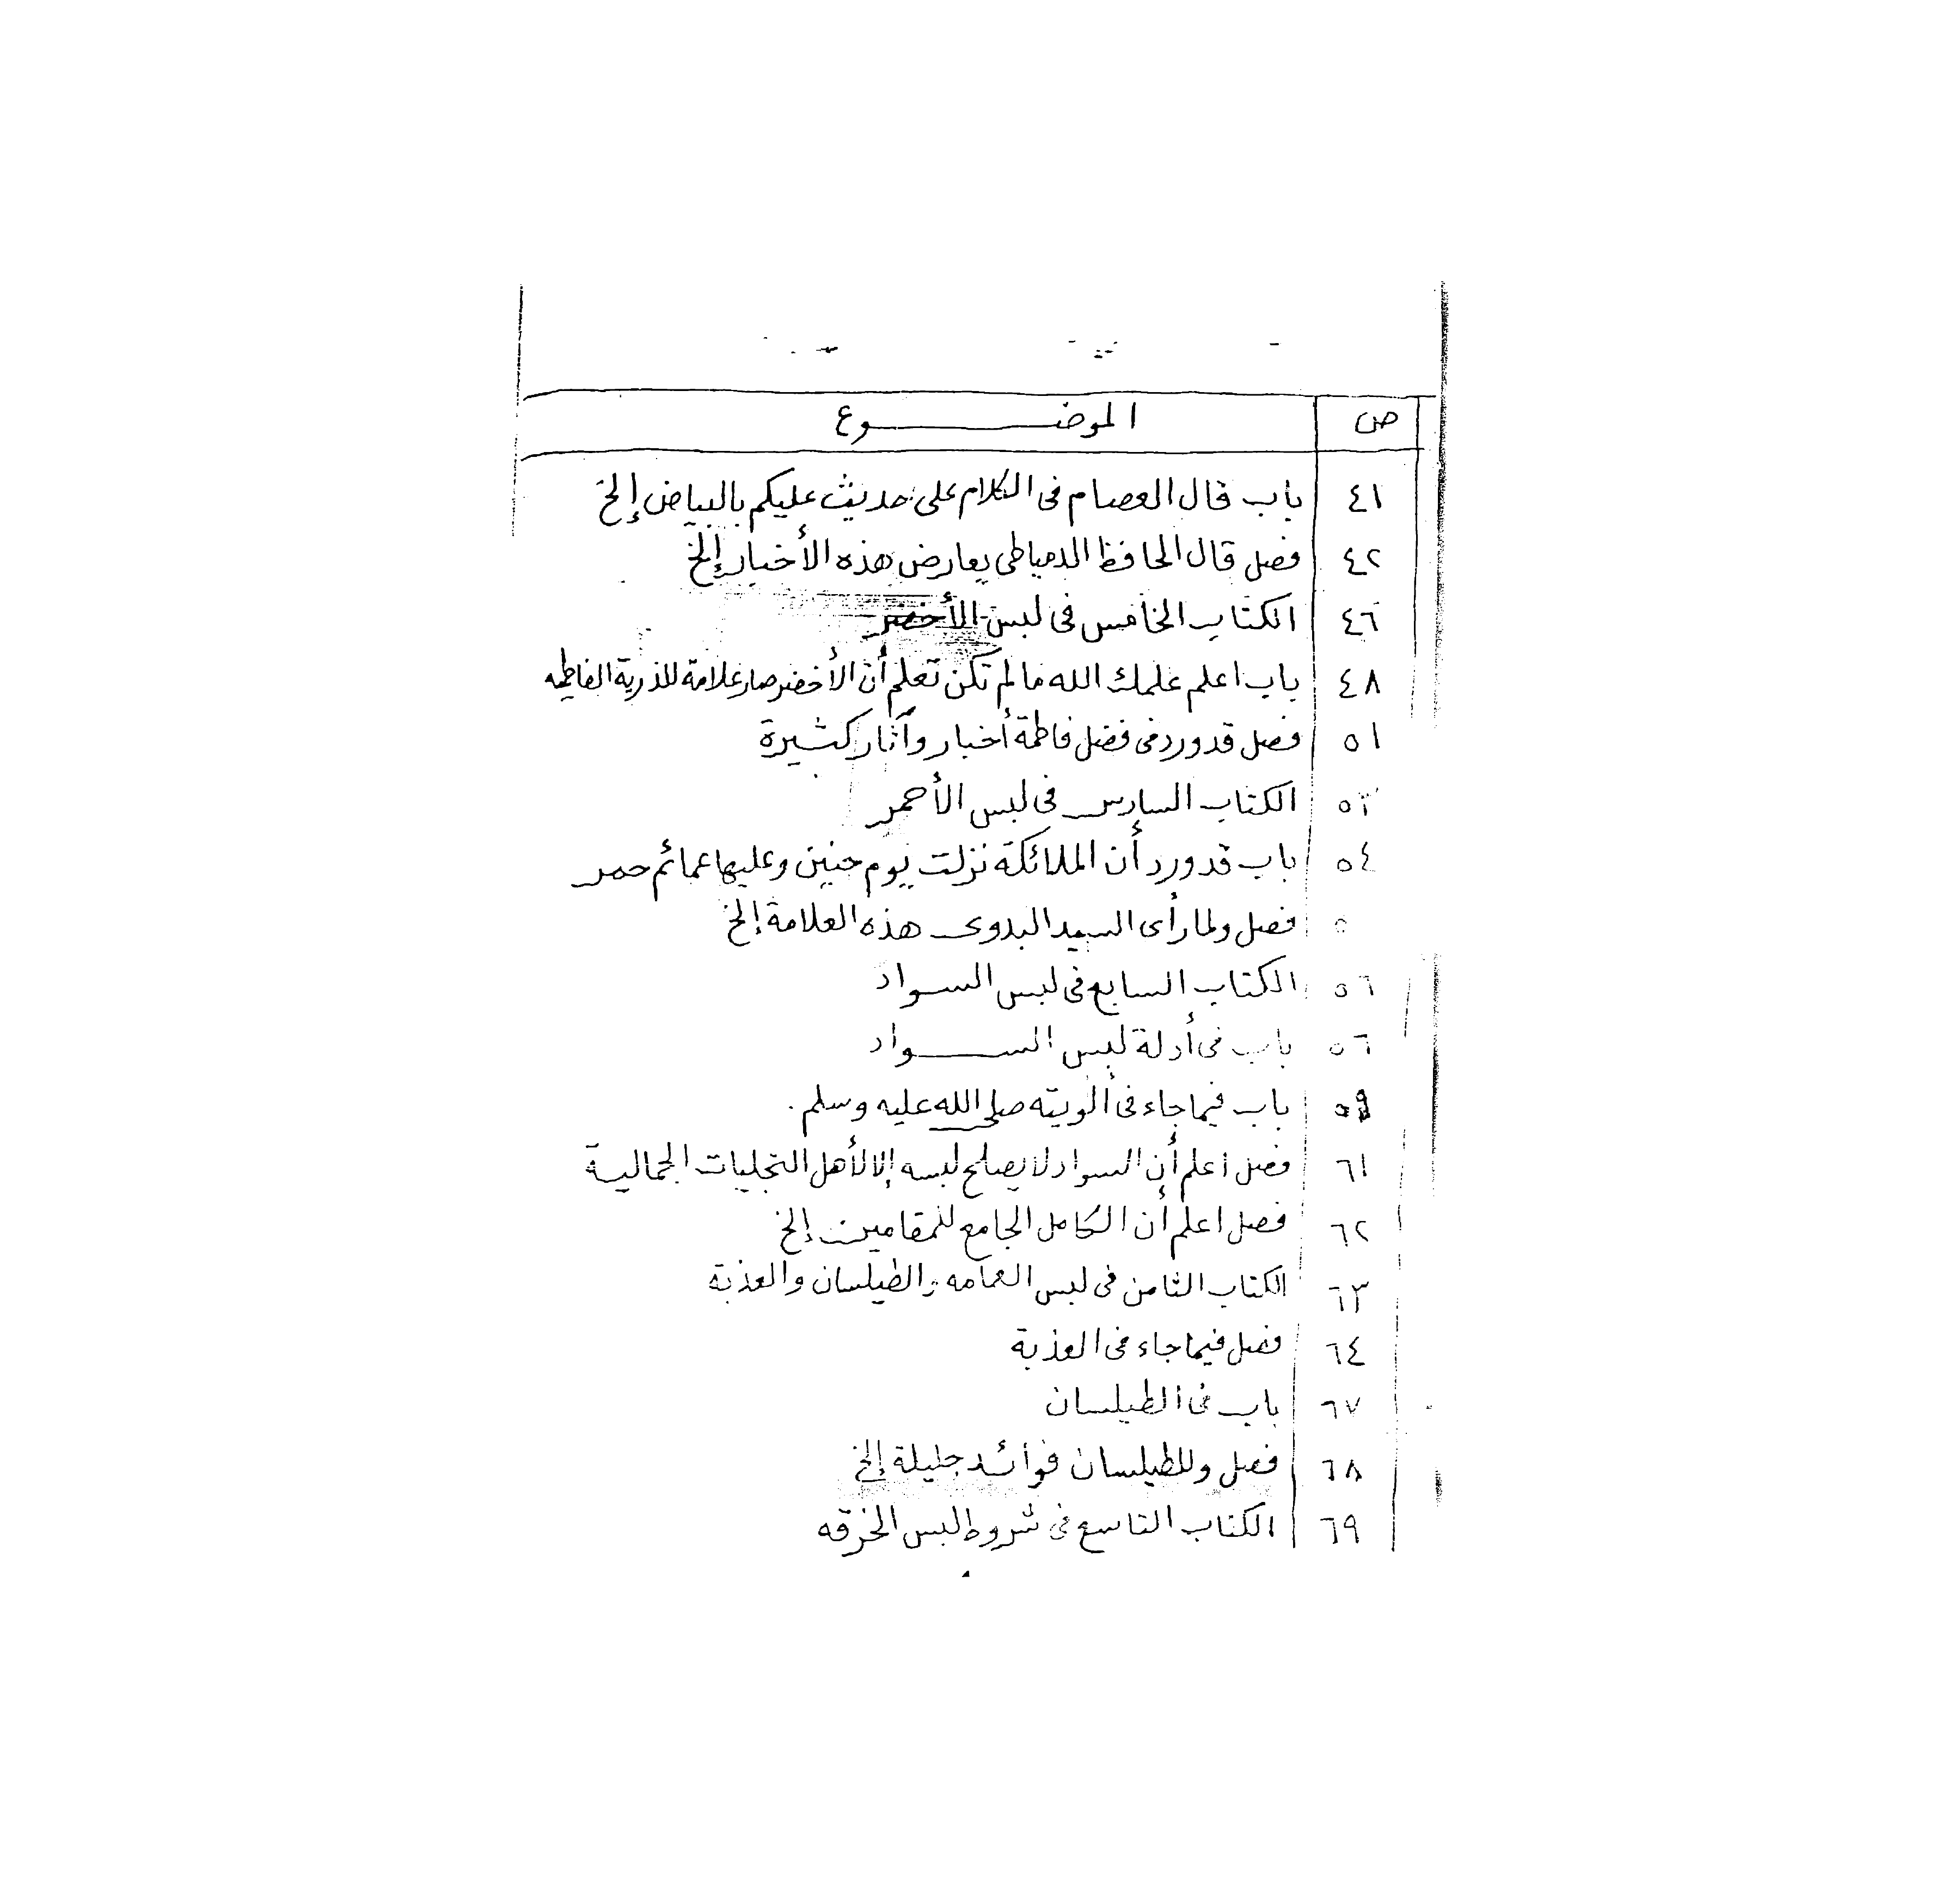 ص الموضوع
٤١ باب قال العصام فى الكلام على حديث عليكم بالبياض إلخ
٤٢ فصل قال الحافظ الدمياطى يعارض هذه الأخبار إلخ
٤٦ الكتاب الخامس فى لبس الأخضر
٤٨ باب اعلم علمك الله مالم تكن تعلم أن الأخضر صار علامة للذرية الفاطميه
٥١ فصل قد ورد فى فضل فاطمة أخبار وآثار كثيرة
الكتاب السادس فى لبس الأحمر
٥٤ باب قد ورد أن الملائكة نزلت يوم حنين وعليها عمائم حمر
فصل ولما رأى السيد البدوى هذه العلامة إلخ
٥٦ الكتاب السابع فى لبس السواد
٥٦ باب فى أدلة لبس السواد
٥٩ باب فيما جاء فى ألويته صلى الله عليه وسلم.
٦١ فصل اعلم أن السواد لا يصلح لبسه إلا لأهل التجليات الجمالية
٦٢ فصل اعلم أن الكامل الجامع للمقامين إلخ
٦٣ الكتاب الثامن فى لبس العمامه والطيلسان والعذبة
٦٤ فصل فيما جاء فى العذبة
٦٧ باب فى الطيلسان
٦٨ فصل وللطيلسان فوائد جليلة إلخ
٦٩ الكتاب التاسع فى شروط لبس الخرقه